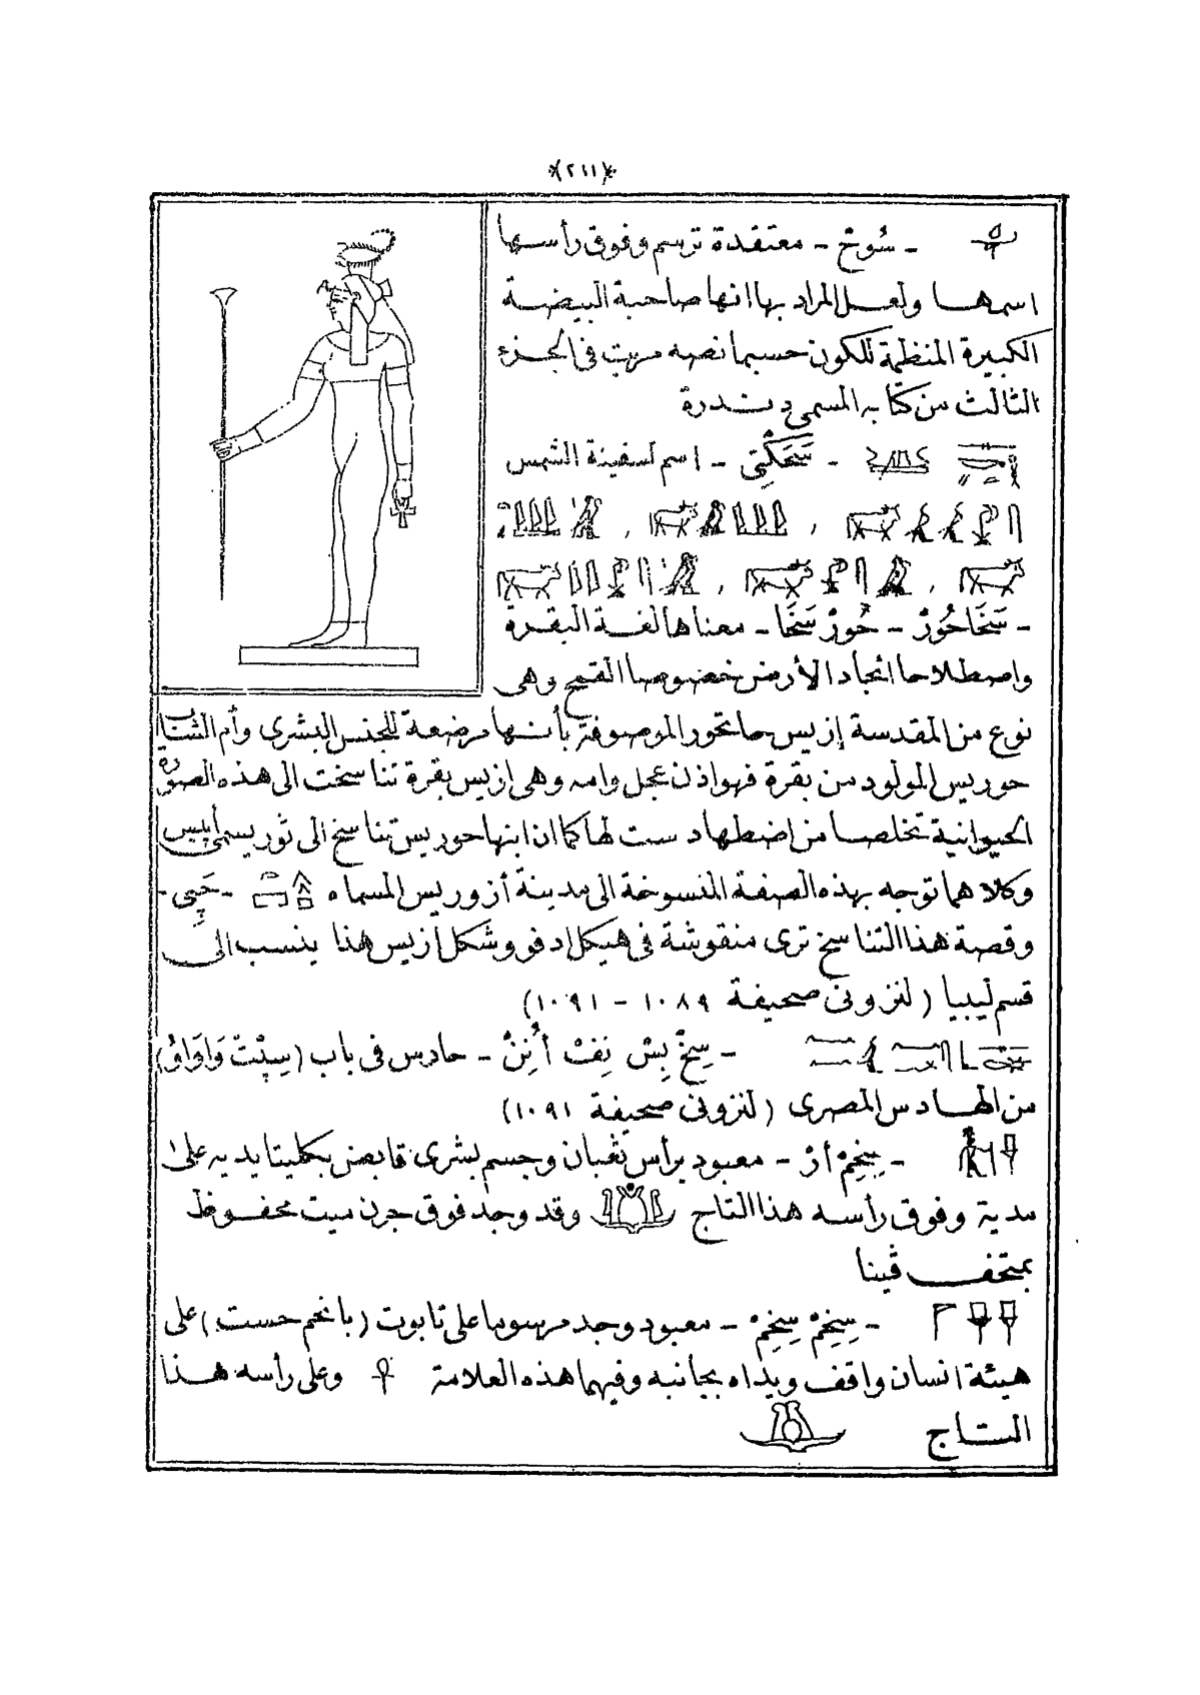 (٢١١)
- سُوخْ - معتقدة ترسم وفوق رأسها
اسمها ولعل المراد بها انها صاحبة البيضة
الكبيرة المنظمة للكون حسبما نصه مريت فى الجزء
الثالث من كتابه المسمى دندرة
- سَحَكْتِى - اسم لسفينة الشمس
،
، ،
- سَخَاحُورْ - حُورْ سَخَا - معناها لغة البقرة
واصطلاحا اتجاد الأرض خصوصا القمح وهى
نوع من المقدسة إزيس حاتحور الموصوفة بأنها مرضعة للجنس البشرى وأم الشاب
حوريس المولود من بقرة فهو اذن عجل وامه وهى ازيس بقرة تناسخت الى هذه الصورة
الحيوانية تخلصا من اضطهاد ست لها كما ان ابنها حوريس تناسخ الى ثور يسمى أپيس
وكلاهما توجه بهذه الصفة المنسوخة الى مدينة أزوريس المسماه - حَپِى -
وقصة هذا التناسخ ترى منقوشة فى هيكل ادفو وشكل ازيس هذا ينسب الى
قسم ليبيا (لنزونى صحيفة ١٠٨٩ - ١٠٩١)
- سِخْ بِسْ نِفْتْ أُنِنْ - حارس فى باب (سِپْتْ وَاوَاوْ)
من الهادس المصرى (لنزونى صحيفة ١٠٩١)
- سِخِمْ أرْ - معبود برأس ثعبان وجسم بشرى قابض بكلتا يديه على
مدية وفوق رأسه هذا التاج وقد وجد فوق جرن ميت محفوظ
بمتحف ڤينا
- سِخِمْ سِخِمْ - معبود وجد مرسوما على تابوت (بانحم حست) على
هيئة انسان واقف ويداه بجانبه وفيهما هذه العلامة وعلى رأسه هذا
التاج